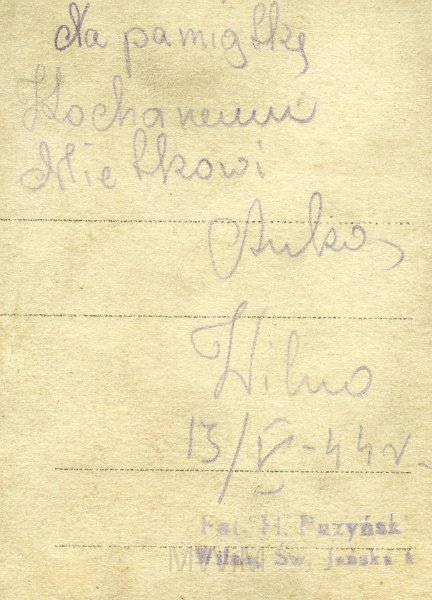 Na pamiątkę
Kochanemu
Mietkowi
Anka
Wilno
13/V-44r.
Fot. H. Puzyński
Wilno, Św. Jańska